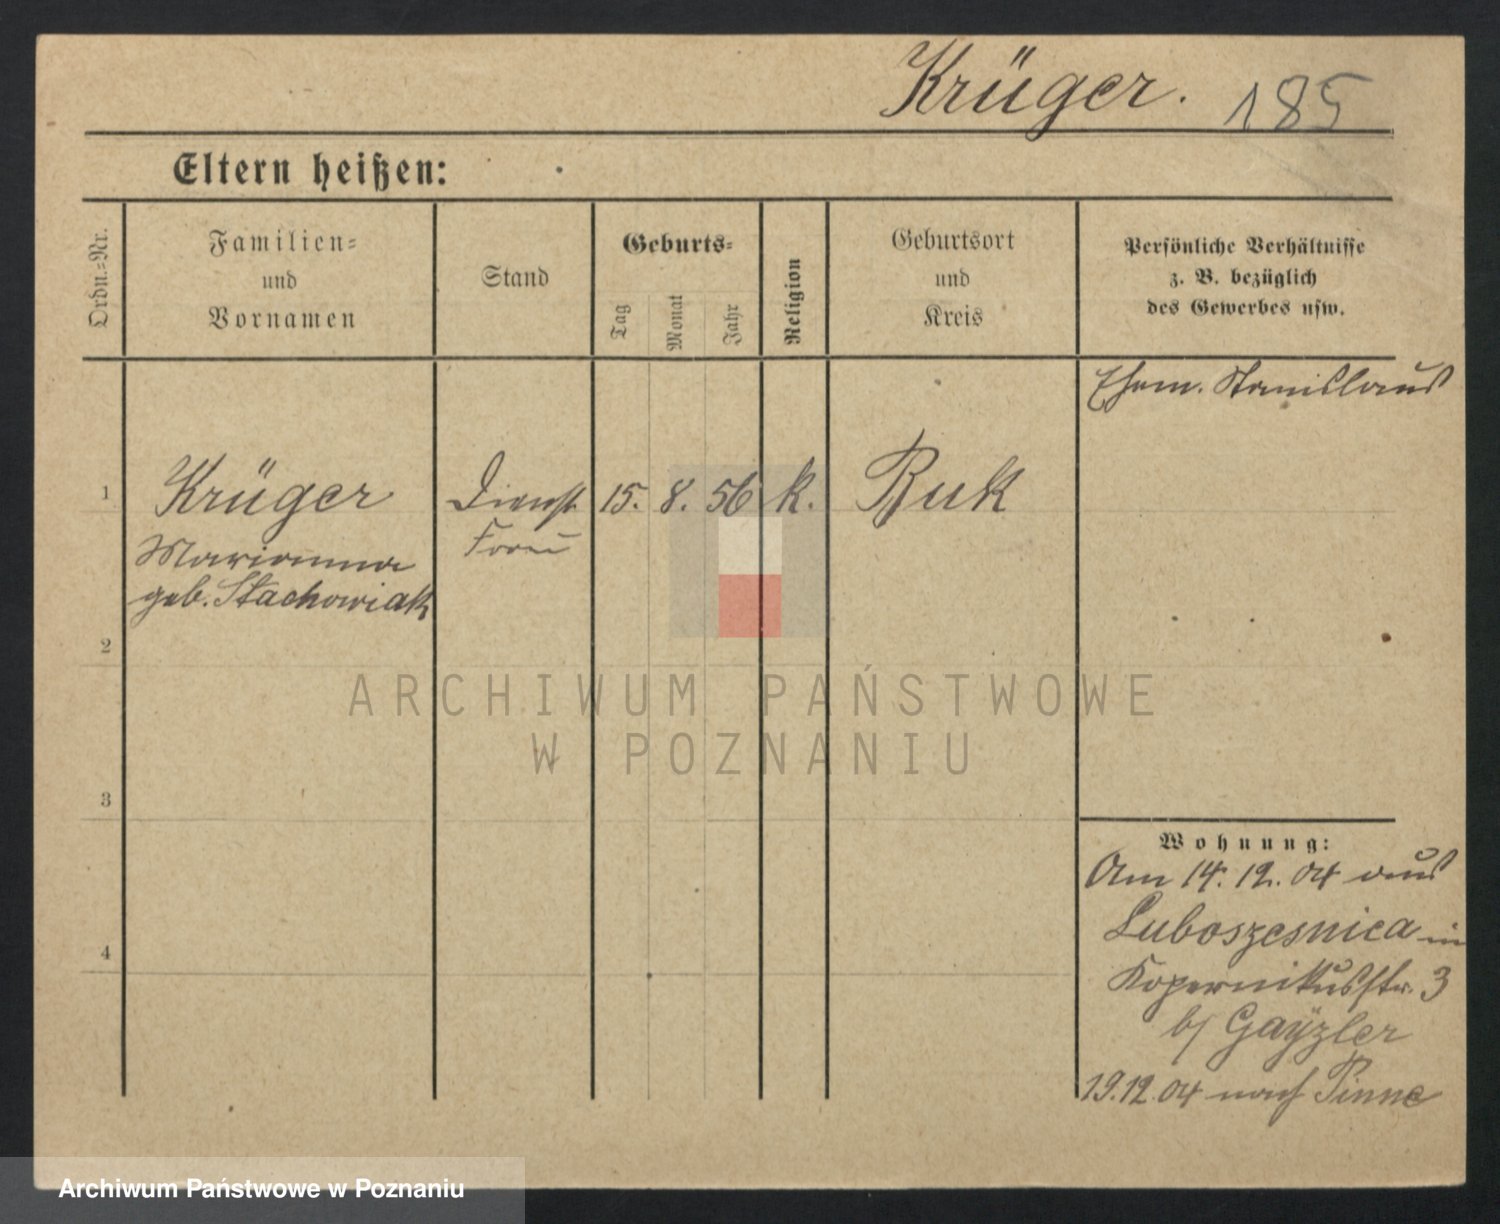 Krüger. 185
Eltern heißen:
Ordn.=Nr.
Familien=
und
Vornamen
Stand
Geburts=
Tag
Monat
Jahr
Religion
Geburtsort
und
Kreis
Persönliche Verhältnisse
z. B. bezüglich
des Gewerbes usw.
Ehem. Stanislaus
1 Krüger Dienst 15. 8. 56 k. Buk
Marianna Frau
geb. Stachowiak
2
3
4
Wohnung:
Am 14. 12. 04 aus
Luboszesnica in
Kopernikusstr. 3
b/ Gaÿzler
19.12.04 nach Pinne
ARCHIWUM PAŃSTWOWE
W POZNANIU
Archiwum Państwowe w Poznaniu